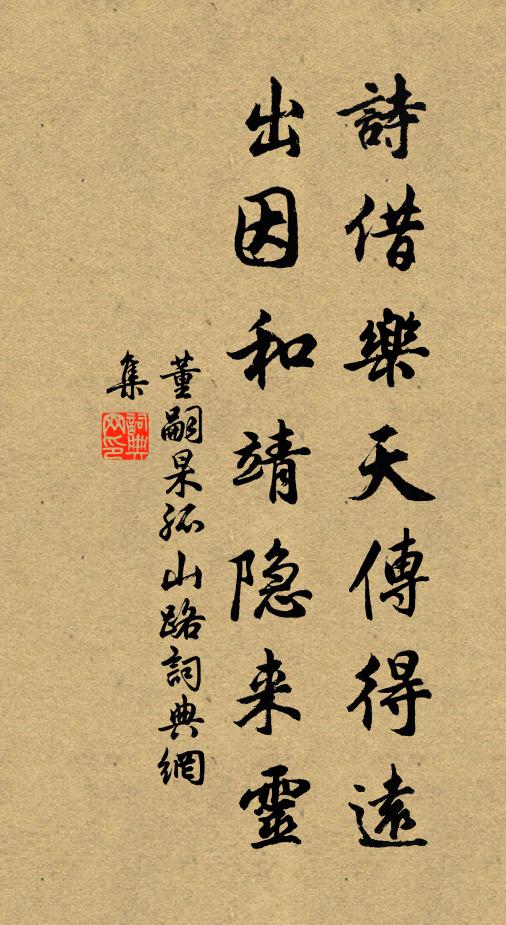 詩借樂天傳得遠
出因和靖隐来靈
董嗣杲孤山路詞典網
集
詞典網印